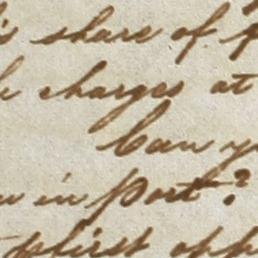 share of
charges at
Can
in port?
first opp